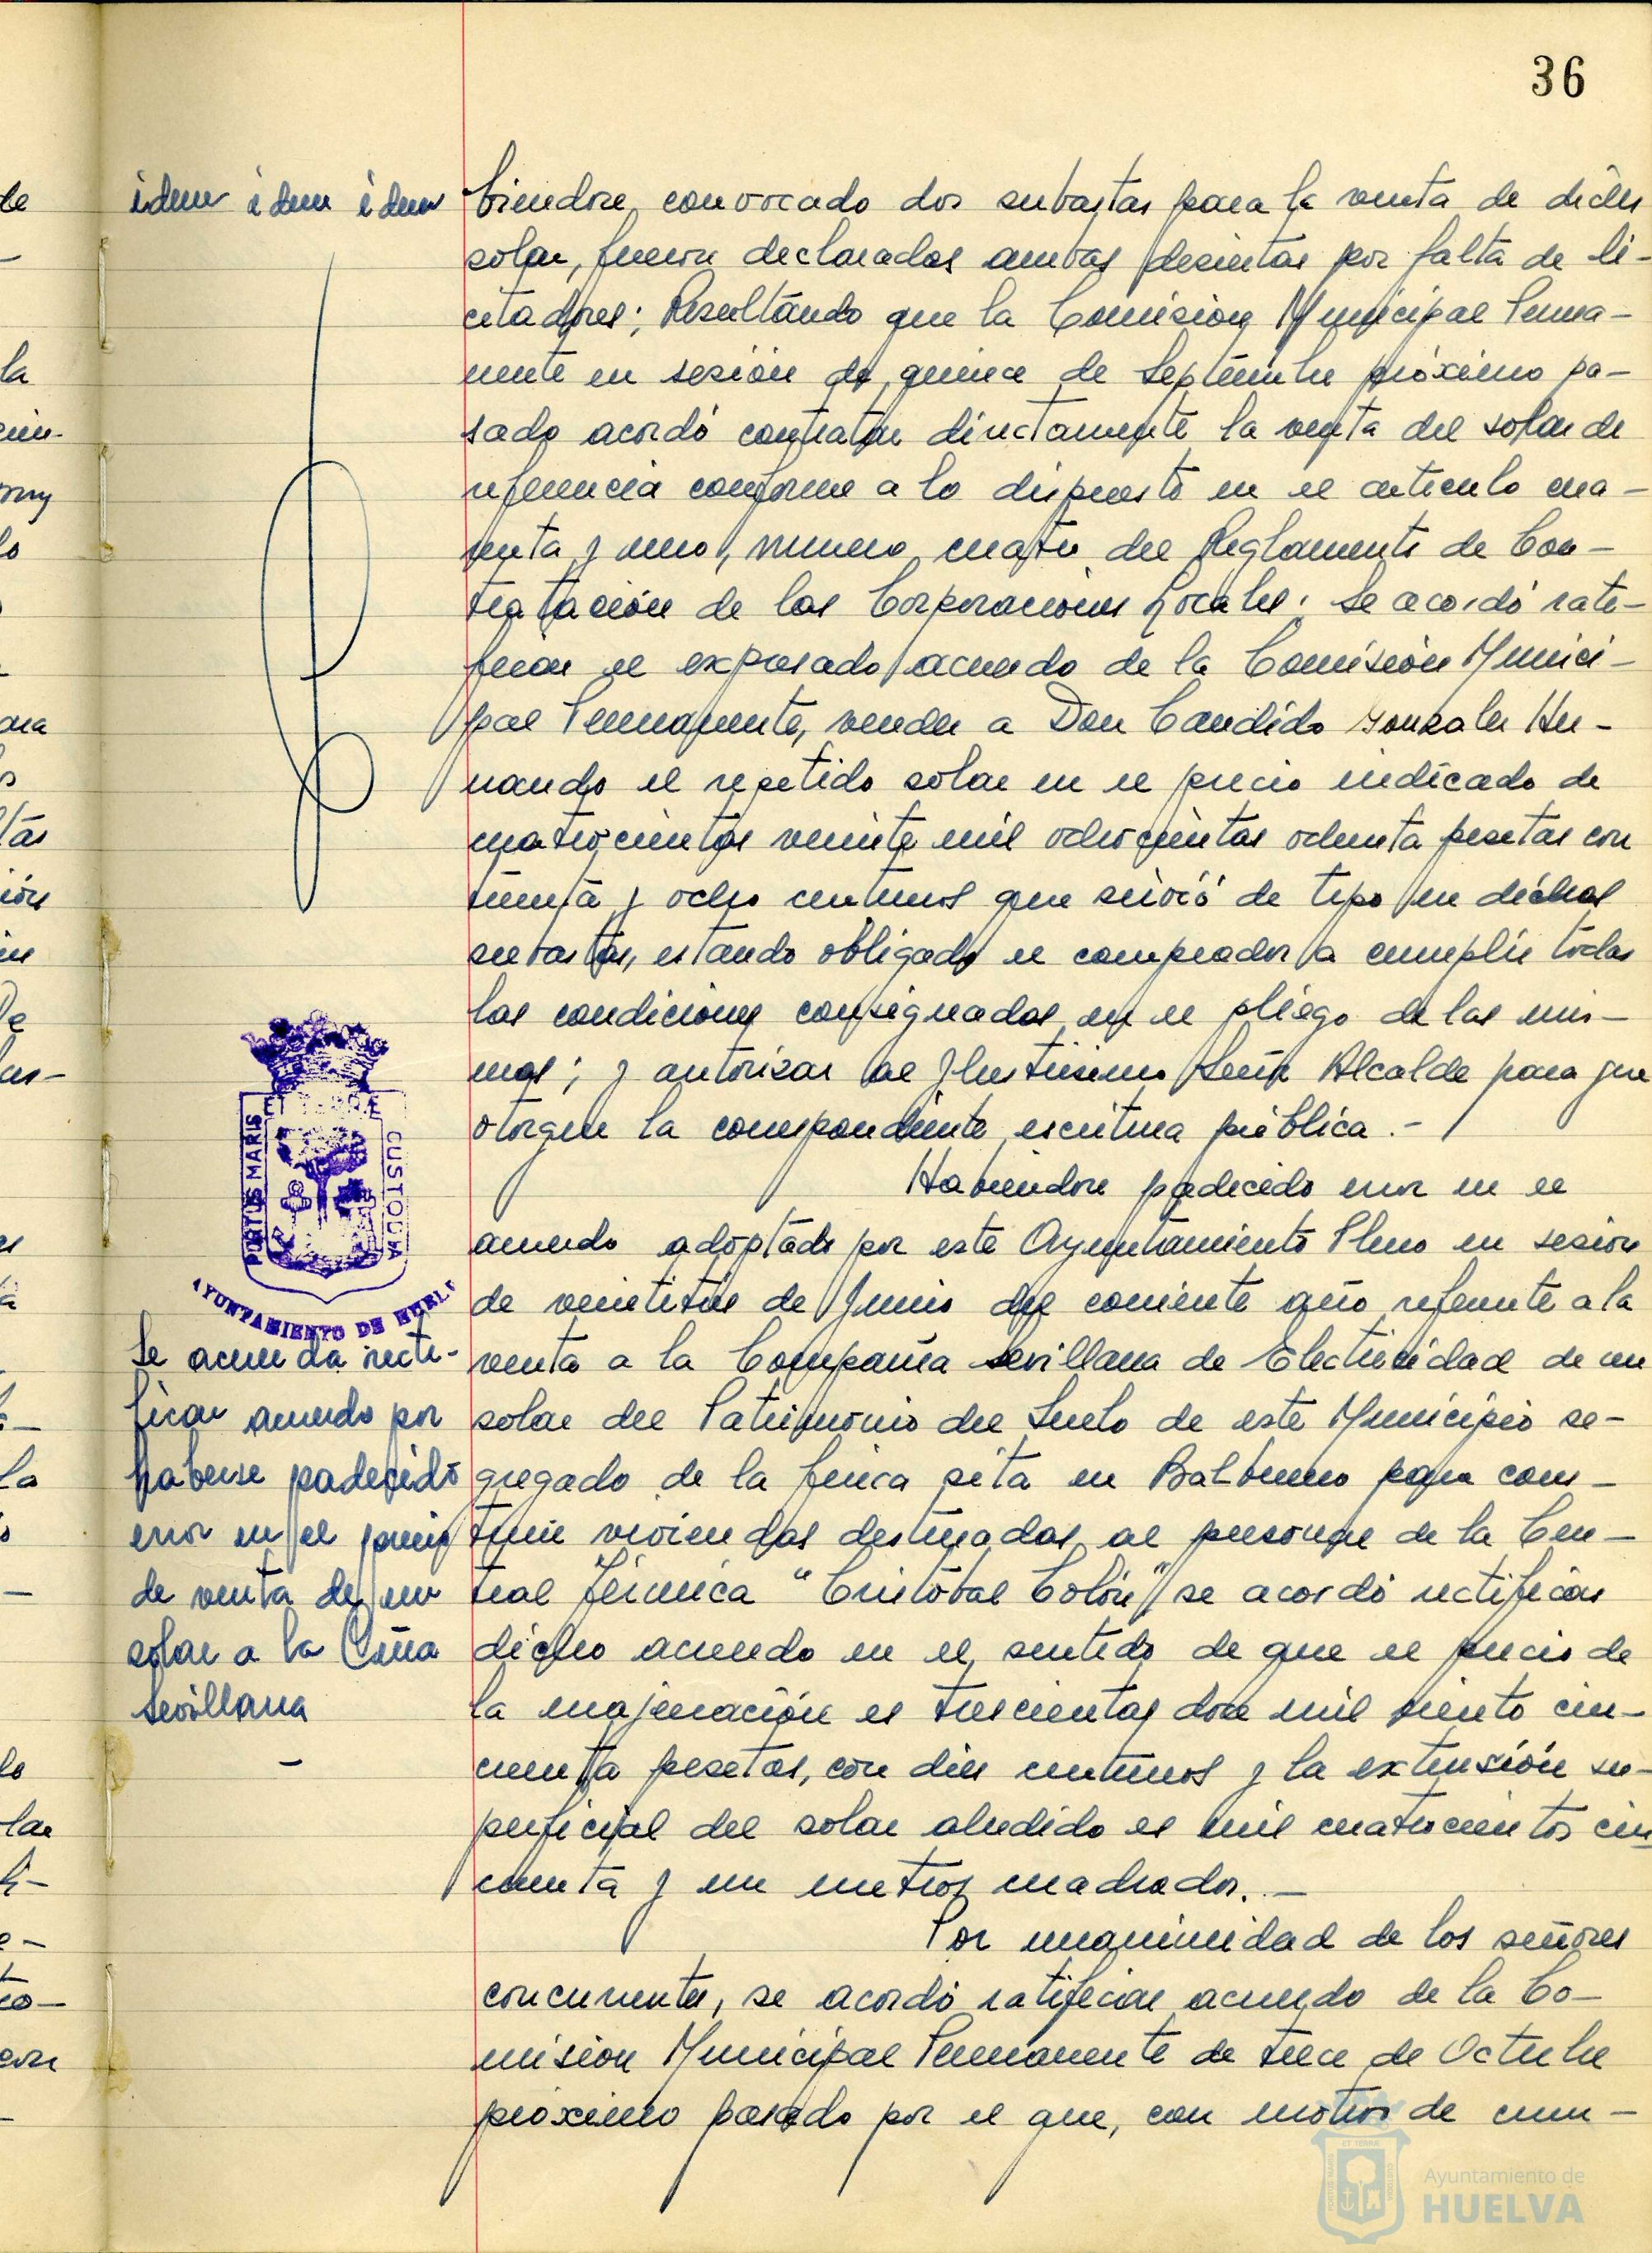 36
idem idem idem
biendose convocado dos subastas para la venta de dicho
solar, fueron declaradas ambas desiertas por falta de li-
citadores; Resultando que la Comision Municipal Perma-
nente en sesión de quince de Septiembre próximo pa-
sado acordó contratar directamente la venta del solar de
referencia conforme a lo dispuesto en el articulo cua-
renta y uno, numero cuatro del Reglamento de Con-
tratación de las Corporaciones Locales; se acordó rati-
ficar el expresado acuerdo de la Comisión Munici-
pal Permanente, vender a Don Candido Gonzalez Her-
nando el repetido solar en el precio indicado de
cuatrocientas veinte mil ochocientas ochenta pesetas con
treinta y ocho centimos que sirvió de tipo en dichas
subastas, estando obligado el comprador a cumplir todas
las condiciones consignadas en el pliego de las mis-
mas; y autorizar al Ilustrisimo Señor Alcalde para que
otorgue la correspondiente escritura pública.-
Habiendose padecido error en el
acuerdo adoptado por este Ayuntamiento Pleno en sesion
de veintitres de Junio del corriente año referente a la
venta a la Compañia Sevillana de Electricidad de un
solar del Patrimonio del Suelo de este Municipio se-
gregado de la finca sita en Balbueno para cons-
truir viviendas destinadas al personal de la Cen-
tral Térmica "Cristobal Colón" se acordó rectificar
dicho acuerdo en el sentido de que el precio de
la enajenación es trescientas doce mil ciento cin-
cuenta pesetas, con diez centimos y la extensión su-
perficial del solar aludido es mil cuatrocientos cin
cuenta y un metros cuadrados.-
Por unanimidad de los señores
concurrentes, se acordó ratificar acuerdo de la Co-
mision Municipal Permanente de trece de Octubre
próximo pasado por el que, con motivo de cum-
PORTUS MARIS
ET TERRE
CUSTODIA
AYUNTAMIENTO DE HUELVA
Se acuerda recti-
ficar acuerdo por
haberse padecido
error en el precio
de venta de un
solar a la Cñia
Sevillana
-
Ayuntamiento de
HUELVA